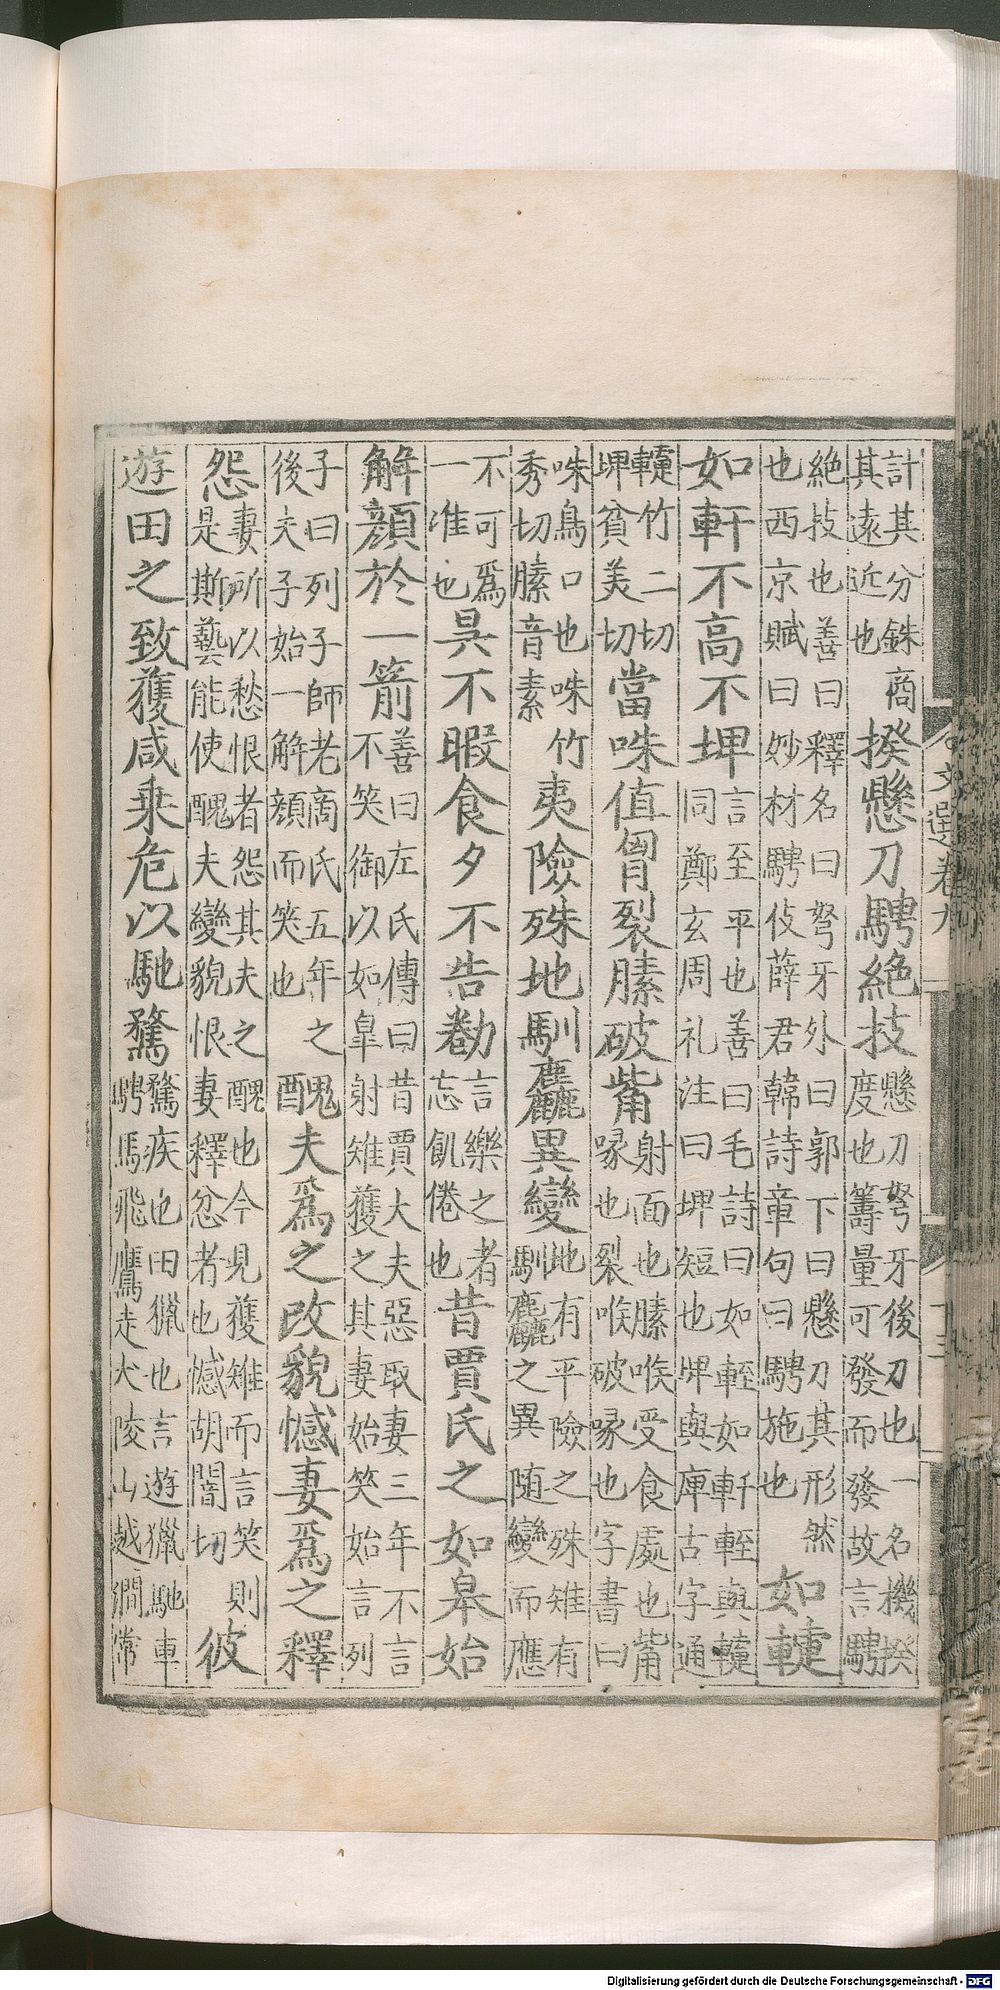 計其分銖商
其遠近也
揆懸刀騁絕技
懸刀弩牙後刀也一名機揆
度也籌量可發而發故言騁
絕技也善曰釋名曰弩牙外曰郭下曰懸刀其形然
也西京賦曰妙材騁伎薛君韓詩章句曰騁施也
如轋
如軒不高不埤
言至平也善曰毛詩曰如輊如軒輊與轋
同鄭玄周礼注曰埤短也埤與庳古字通
轋竹二切
埤貧美切
當咮值胷裂膆破觜
射面也膆喉受食處也觜
喙也裂喉破喙也字書曰
咮鳥口也咮竹
秀切膆音素
夷險殊地馴麤異變
地有平險之殊雉有
馴麤之異随變而應
不可爲
一准也
昃不暇食夕不告勌
言樂之者
忘飢倦也
昔賈氏之如皋始
解顏於一箭
善曰左氏傳曰昔賈大夫惡取妻三年不言
不笑御以如皐射雉獲之其妻始笑始言列
子曰列子師老啇氏五年之
後夫子始一解顏而笑也
醜夫爲之改貌憾妻爲之釋
怨
妻所以愁恨者怨其夫之醜也今見獲雉而言笑則
是斯藝能使醜夫變貌恨妻釋忿者也憾胡闇切
彼
遊田之致獲咸乗危以馳騖
騖疾也田獵也言遊獵馳車
騁馬飛鷹走犬陵山越澗常
文選卷九
Digitalisierung gefördert durch die Deutsche Forschungsgemeinschaft - DFG